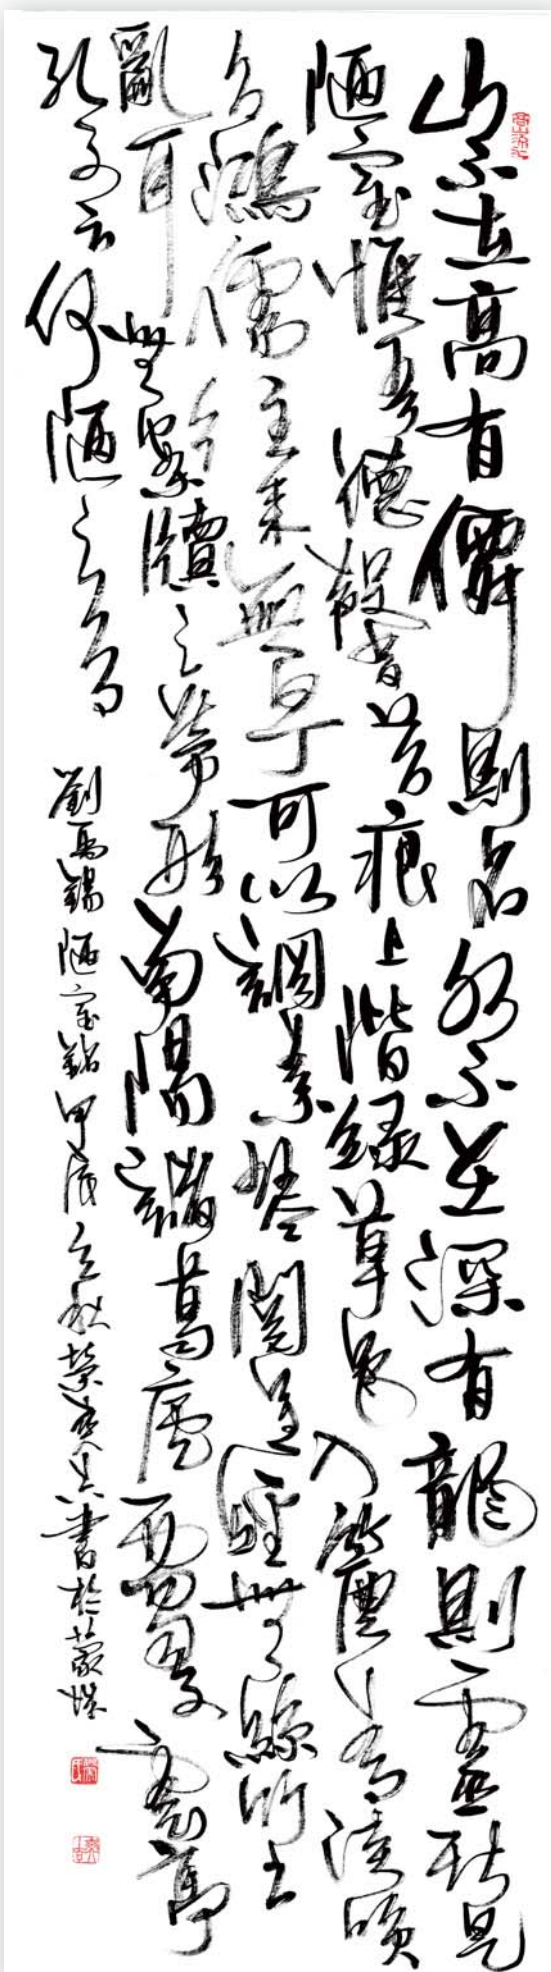 山不在高有僊則名水不在深有龍則靈斯是
陋室惟吾德馨苔痕上階緑草色入簾青談咲
有鴻儒往來無白丁可以調素琴閲金經無絲竹之
亂耳無案牘之勞形南陽諸葛廬西蜀子雲亭
孔子云何陋之有
劉禹錫陋室銘甲辰立秋榮書於蒙城